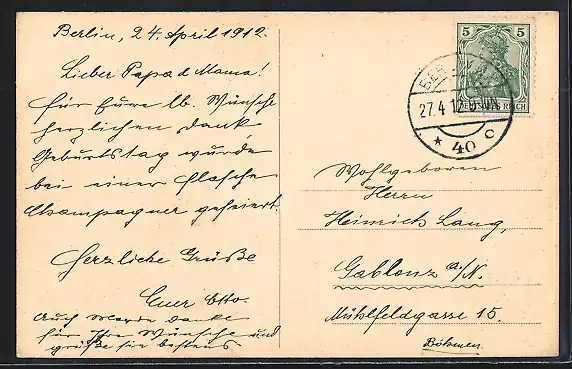 Berlin, 24. April 1912.
Lieber Papa & Mama!
Für Eure lb. Wünsche
herzlichen Dank
Geburtstag wurde
bei einer Flasche
Champagner gefeiert.
Herzliche Grüße
Euer Otto.
Auch danke
für Ihre Wünsche und
grüße Sie bestens
5 5
DEUTSCHES REICH
BERLIN
27.4.12
* 40 c
Wohlgeboren
Herrn
Heinrich Lang,
Gablonz a/N.
Mühlfeldgasse 15.
Böhmen